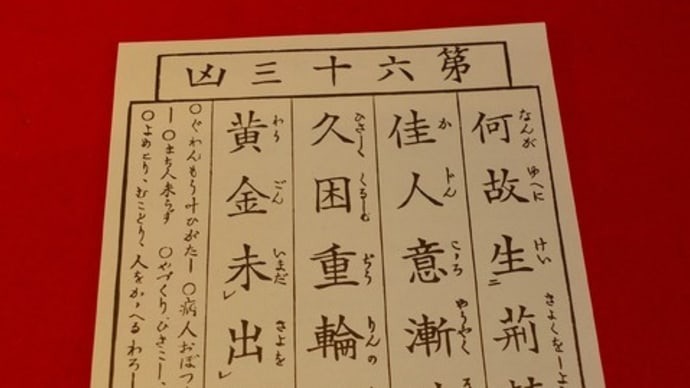 第六十三凶
何故生ニ荊
なんが ゆへに けい きよくを
佳人意漸
か じん こゝろ やうやく
久困重輪
ひさしく くるしむ ぢう りんの
黄金未レ出レ
わう ごん いまだ
○ぐわんもう叶ひがたし ○病人おぼつ
し ○まち人来らず ○やづくり、ひきこし、
○よめとり、むことり、人をかゝへるわろし